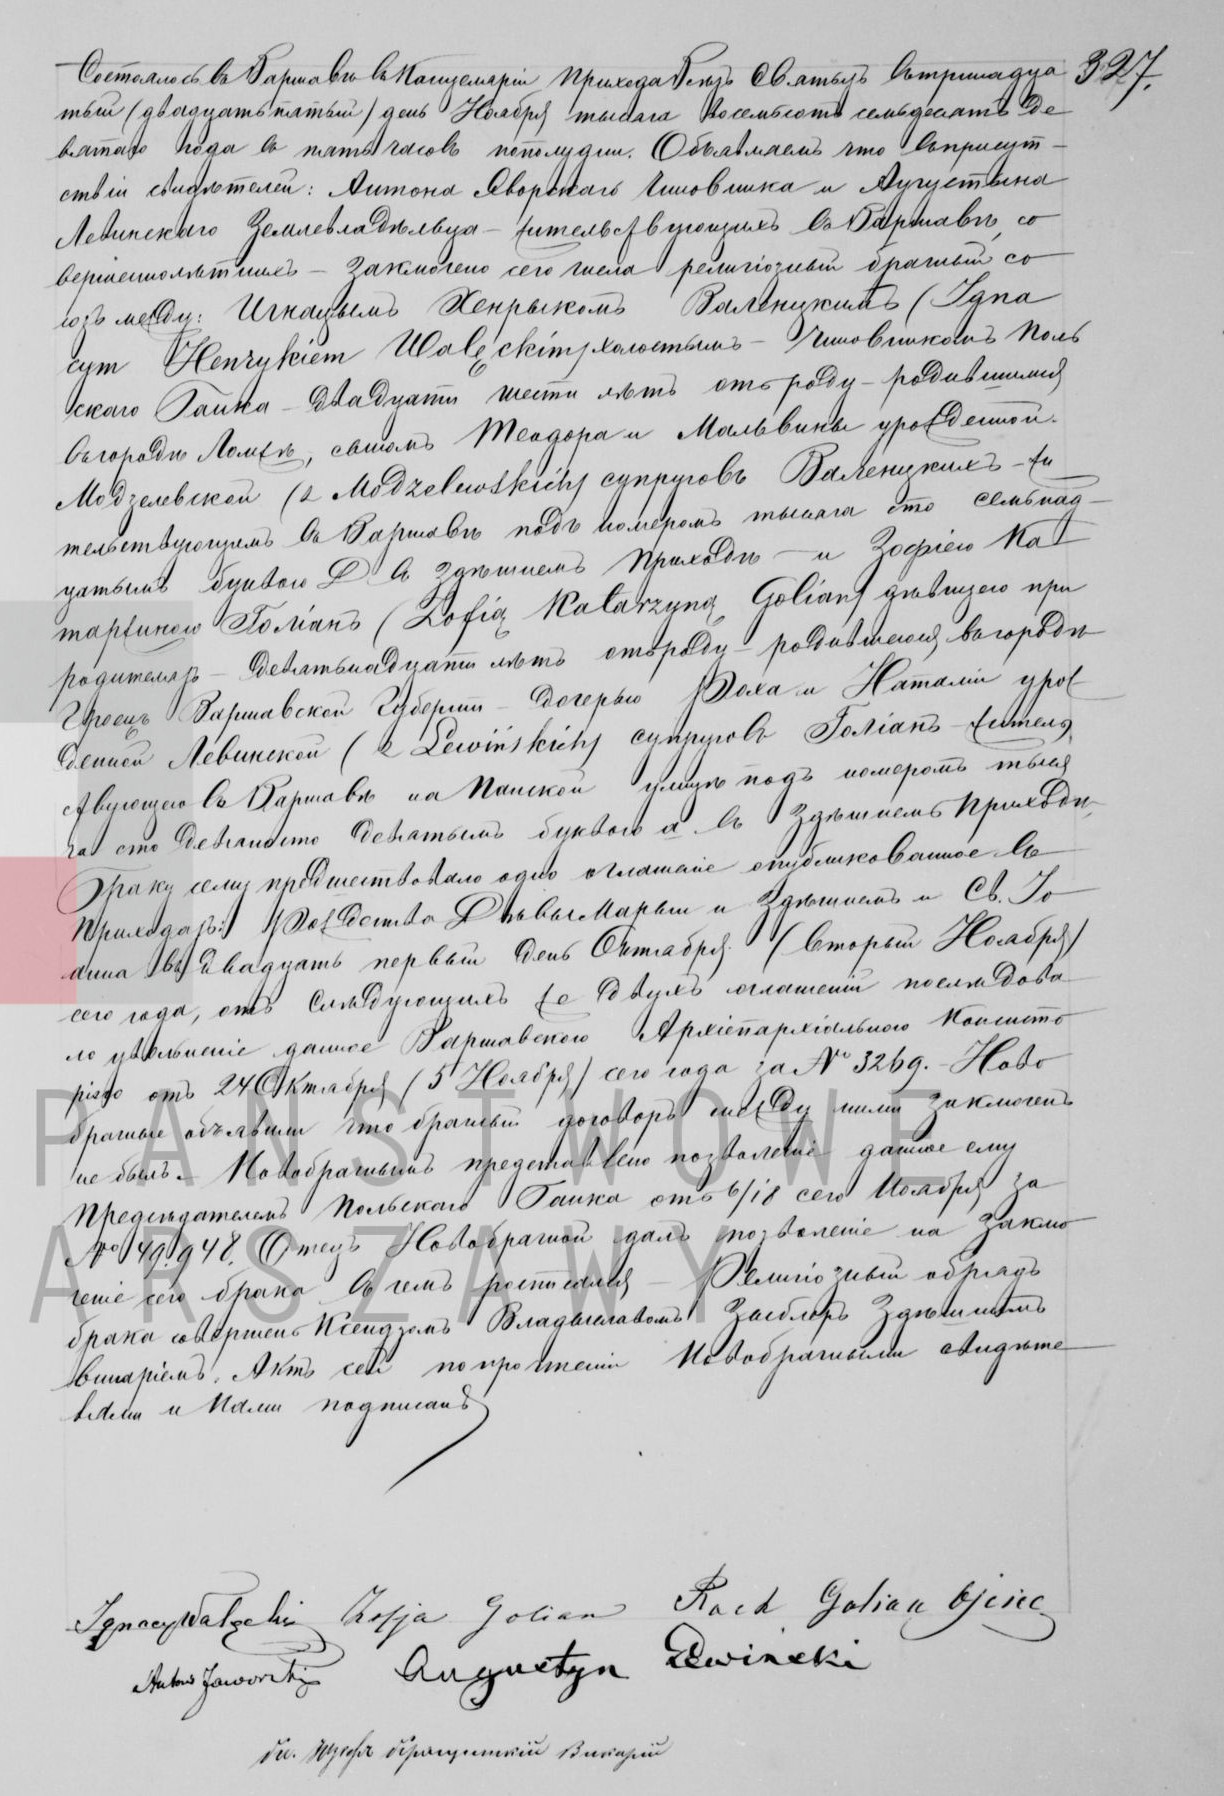 327.
Состоялось въ Варшавѣ въ Канцеляріи Прихода Всѣхъ Святыхъ въ тринадца
тый (двадцать пятый) день Ноября тысяча восемьсотъ семьдесятъ де
вятаго года въ пять часовъ пополудни. Объявляемъ что въ присут-
ствіи свидѣтелей: Антона Яворскаго Чиновника и Аугустына
Левинскаго Землевладѣльца - жительствующихъ въ Варшавѣ, со
вершеннолѣтнихъ - заключено сего числа религіозный брачный со
юзъ между: Игнацымъ Хенрыкомъ Валенцкимъ (Igna
cym Henrykiem Walęckim) холостымъ - Чиновникомъ Поль
скаго Банка - двадцати шести лѣтъ отъ роду - родившимся
въ городѣ Ломжѣ, сыномъ Теодора и Мальвины урожденной
Модзелевской (z Modzelewskich) супруговъ Валенцкихъ - жи
тельствующимъ въ Варшавѣ подъ номеромъ тысяча сто семьнад-
цатымъ буквою D въ здѣшнемъ Приходѣ - и Зофіею Ка-
тариною Голіанъ (Zofią Katarzyną Golian) дѣвицею при
родителяхъ - девятьнадцати лѣтъ отъ роду - родившеюся въ городѣ
Гроецъ Варшавской Губерніи - дочерью Роха и Наталіи урож
денной Левинской (z Lewińskich) супруговъ Голіанъ - жительс
твующею въ Варшавѣ на Панской улицѣ подъ номеромъ тыся
ча сто девяносто девятымъ буквою а въ здѣшнемъ Приходѣ.
Браку сему предшествовало одно оглашеніе опубликованное въ
Приходахъ: Рождества Дѣвы Марыи и Здѣшнемъ и Св. Іо
анна въ двадцать первый день Октября (вторый Ноября)
сего года, отъ слѣдующихъ же двухъ оглашеній послѣдова
ло увольненіе данное Варшавскою Архіепархіальною Консисто
ріею отъ 24 Октября (5 Ноября) сего года за № 3269. - Ново
брачные объявили что брачный договоръ между ними заключенъ
не былъ. - Новобрачнымъ представлено позволеніе данное ему
Предсѣдателемъ Польскаго Банка отъ 6/18 сего Ноября за
№ 49.948. Отецъ Новобрачной далъ позволеніе на заклю
ченіе сего брака въ чемъ росписался - Религіозный обрядъ
брака совершенъ Ксендзомъ Владыславомъ Здѣшнимъ
викаріемъ. Актъ сей по прочтеніи Новобрачными свидѣте
лями и Нами подписанъ
Ignacy Walęcki Zofja Golian Roch Golian ojciec
Antoni Jaworski Augustyn Lewiński
Викарій
PAŃSTWOWE
ARSZAWY